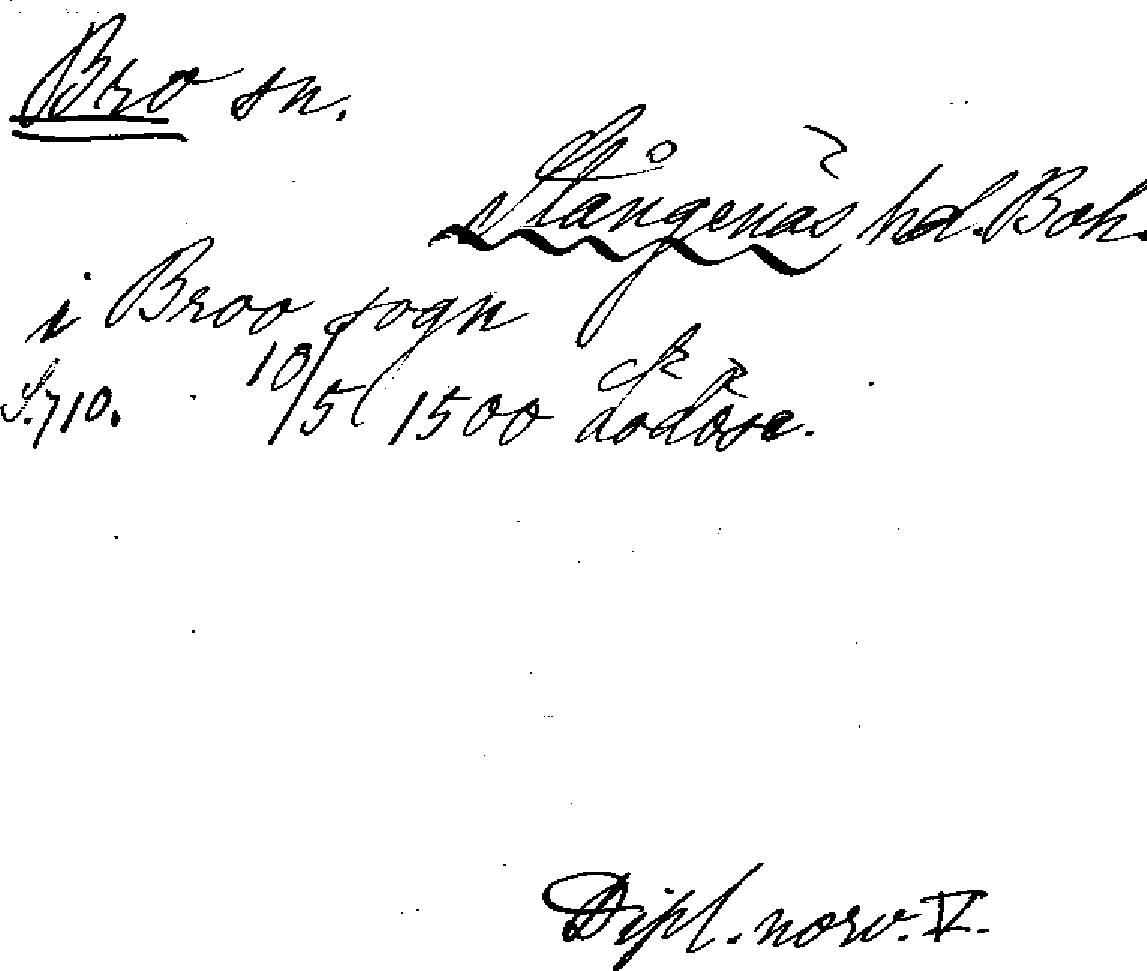 Bro sn.
Stångenäs hd. Boh.
i Broo sogn
S. 710. 10/5 1500 Lödöse.
Dipl. norv. V.